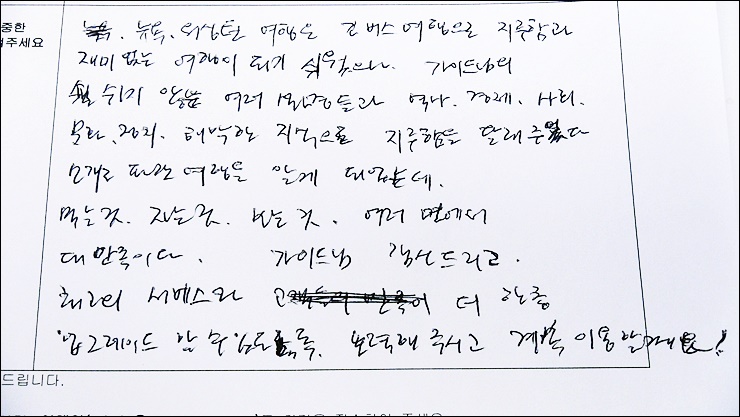 중한
겨주세요
뉴욕, 워싱턴 여행은 긴 버스 여행으로 지루함과
재미없는 여행이 되기 쉬웠으나. 가이드님의
쉬지 않는 여러 설명들과 역사, 경제, 사회,
문화, 정치, 해박한 지식으로 지루함을 달래주었다
모개로 파란 여행을 알게 되었는데.
먹는것. 자는것. 보는것. 여러 면에서
대만족이다. 가이드님 감사드리고.
최고의 서베스와 더 한층
업그레이드 할 수 있도록. 노력해 주시고 계속 이용할게요!
드립니다.